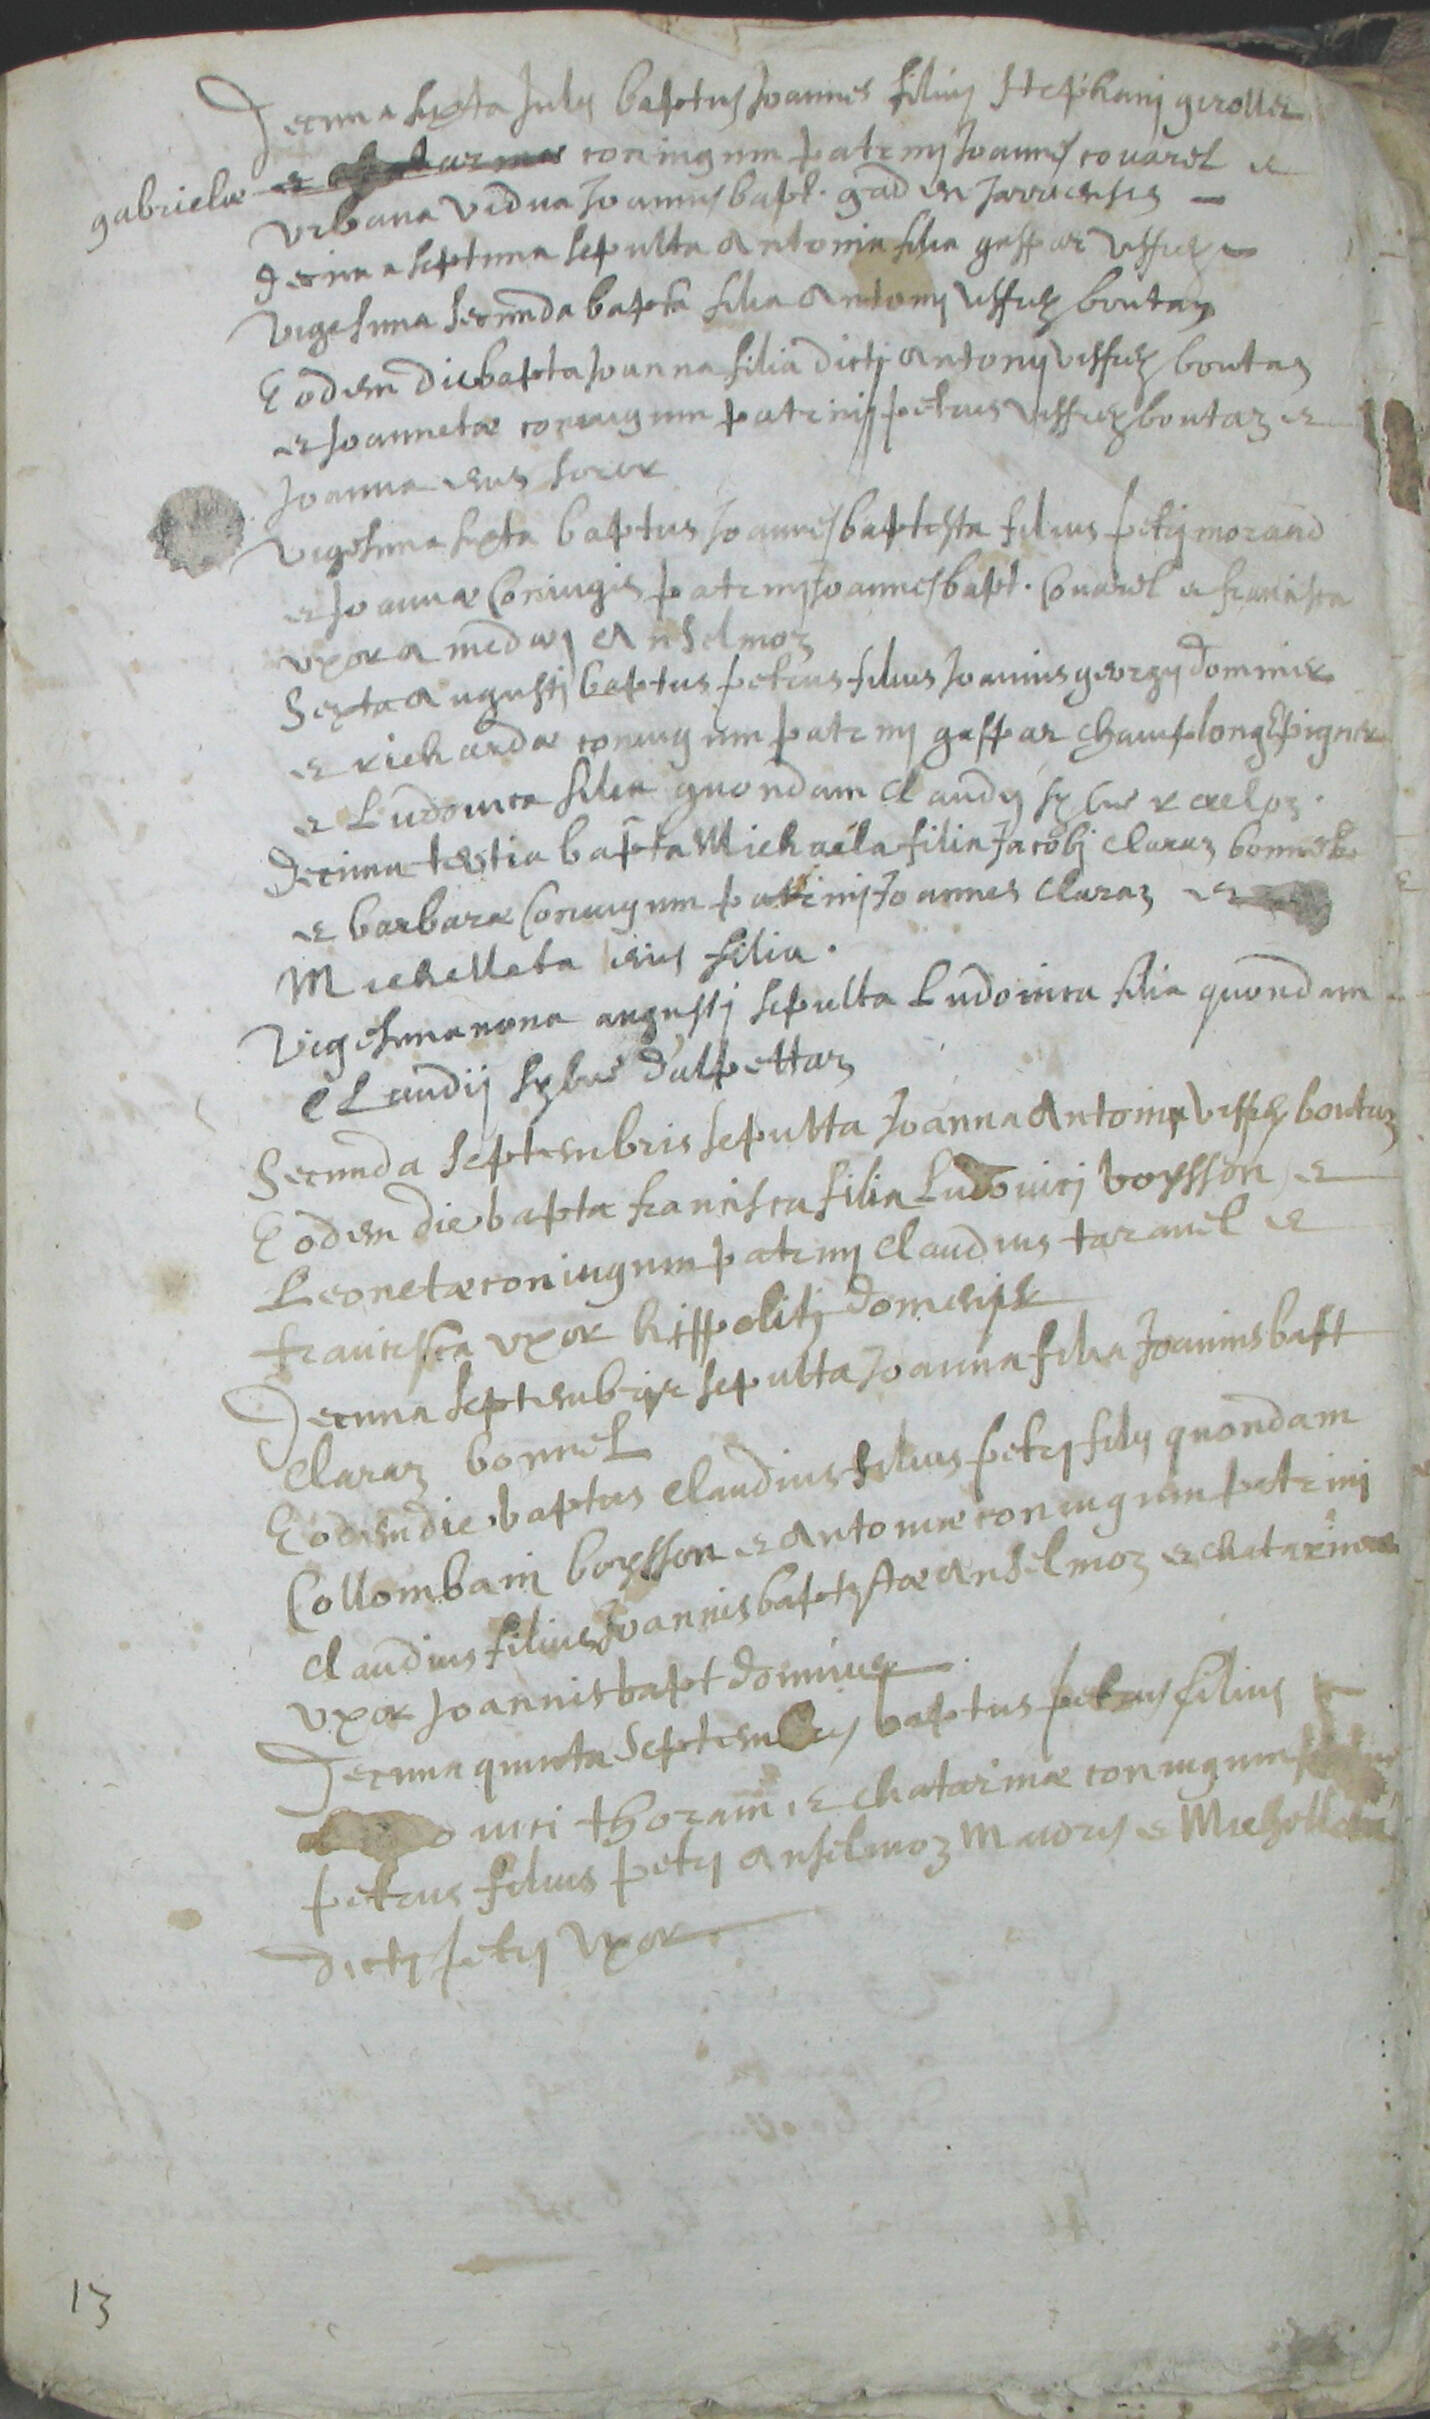 Decima sexta Julij baptus Joannes filius Stephanij gerollet
gabrielæ et coniugum patrinij Joannes couarel et
Urbana vidua Joannis bapt. gad en Jarriensis
decima septima sepulta Antonia filia gaspar Viffrey
vigesima secunda bapta filia Antonij viffrey boutaz
Eodem die bapta Joanna filia dictj Antonij viffrey boutaz
et Joannetæ coniugum patrinij petrus viffrey boutaz et
Joanna eius soror
vigesima sexta baptus Joannes baptista filius petrj morand
et Joannæ Coniugis patrinij Joannes bapt. Couarel et francisca
uxor amedæj Anselmoz
Sexta Augustj baptus petrus filius Joannis georgij dominier
et richardæ coniugum patrinij gaspar champlong Epignier
et Ludouica filia quondam Claudij
Decima tertia bapta Michaela filia Jacobj Claraz bonnel
et barbaræ Coniugum patrinij Joannes Claraz et
Michelleta eius filia.
Vigesima nona augustj sepulta Ludouica filia quondam
Claudij dalpettaz
Secunda septembris sepulta Joanna Antonia viffrey boutaz
Eodem die bapta francisca filia Ludouicj boysson et
Leonetæ coniugum patrinij Claudius tarauel et
francisca uxor hippolitj domenjer
Decima septembris sepulta Joanna filia Joannis bapt
Claraz bonnel
Eodem die baptus Claudius filius petrj filij quondam
Collombanj boysson et Antoniæ coniugum patrinj
Claudius filius Joannis baptistæ Anselmoz et chatarina
uxor Joannis bapt dominier
Decima quinta Septembris baptus petrus filius
uici thoram et chatarinæ coniugum
petrus filius petrj Anselmoz Mauris et Michelleta
dictj petrj uxor
13